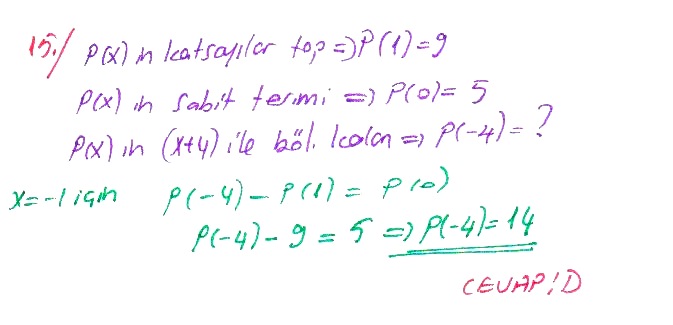 15./ P(x) in katsayılar top => P(1)=9
P(x) in sabit terimi => P(0)= 5
P(x) in (x+4) ile böl. kalan => P(-4)= ?
x=-1 için P(-4) - P(1) = P(0)
P(-4) - 9 = 5 => P(-4)=14
CEVAP: D